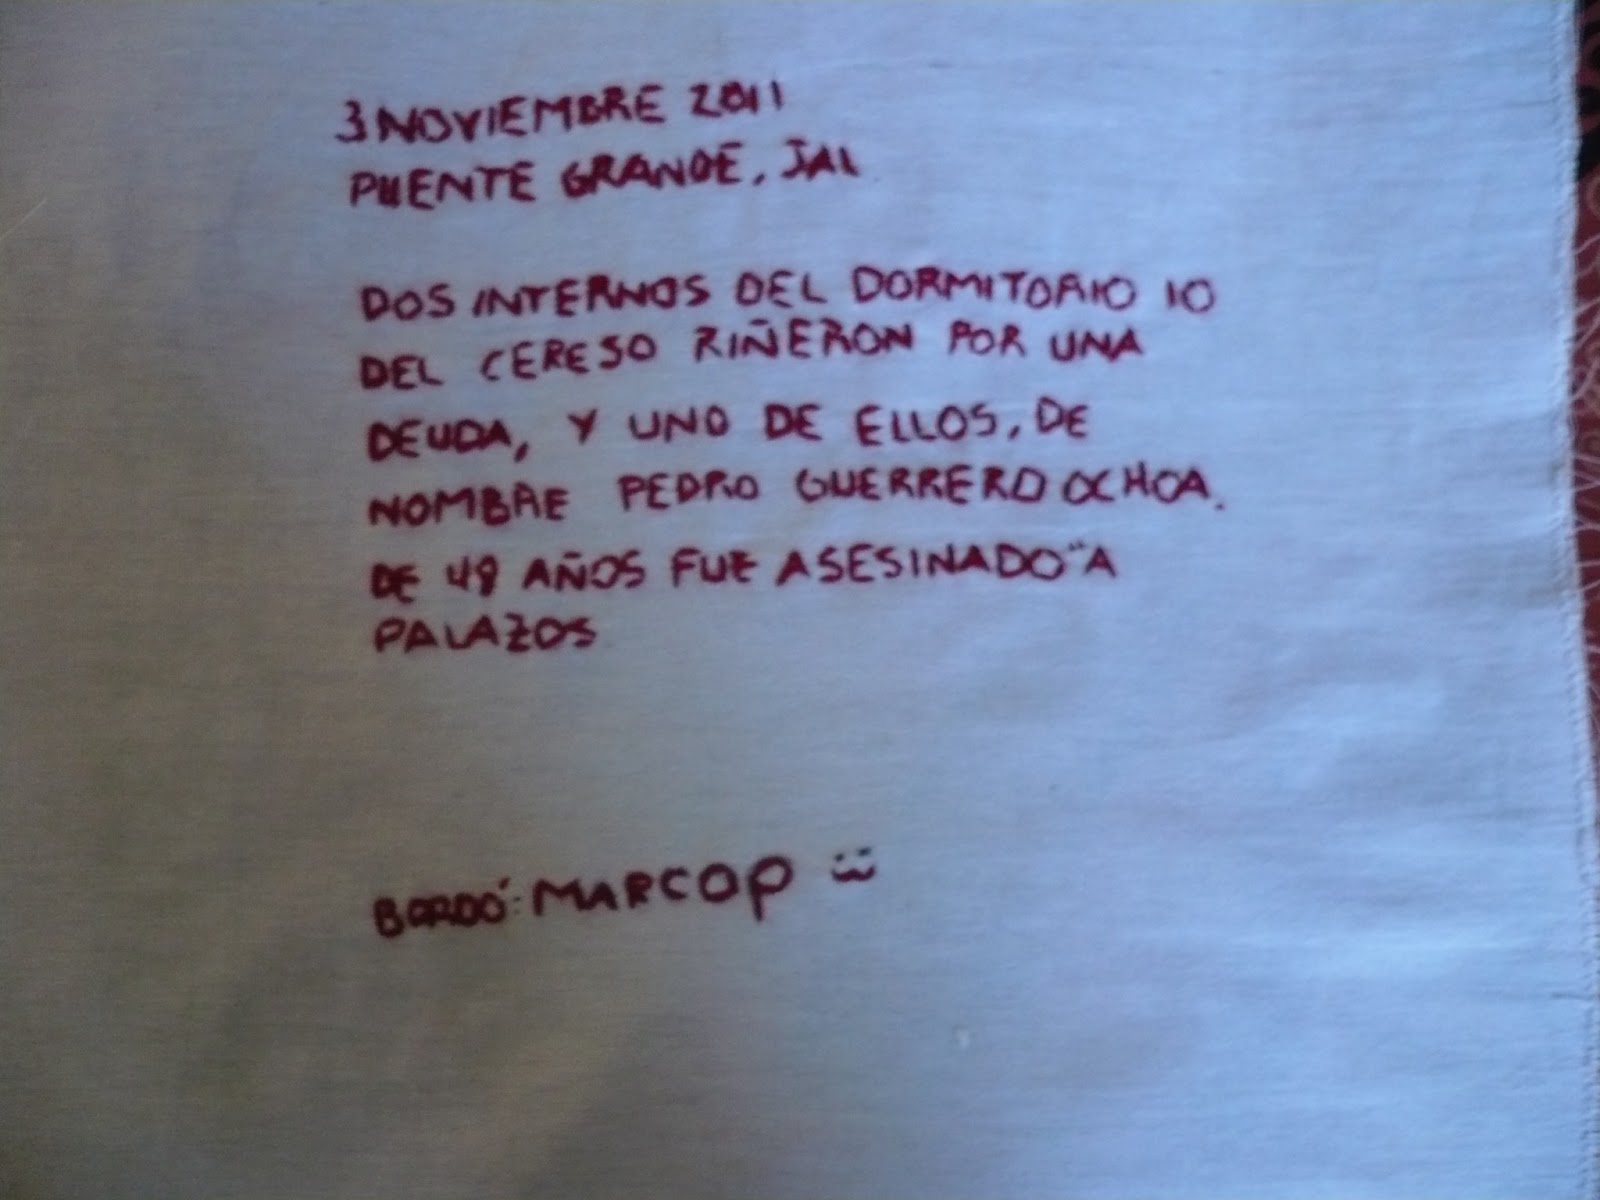 3 NOVIEMBRE 2011
PUENTE GRANDE, JAL
DOS INTERNOS DEL DORMITORIO 10
DEL CERESO RIÑERON POR UNA
DEUDA, Y UNO DE ELLOS, DE
NOMBRE PEDRO GUERRERO OCHOA.
DE 49 AÑOS FUE ASESINADO "A
PALAZOS
BORDÓ: MARCOP :)